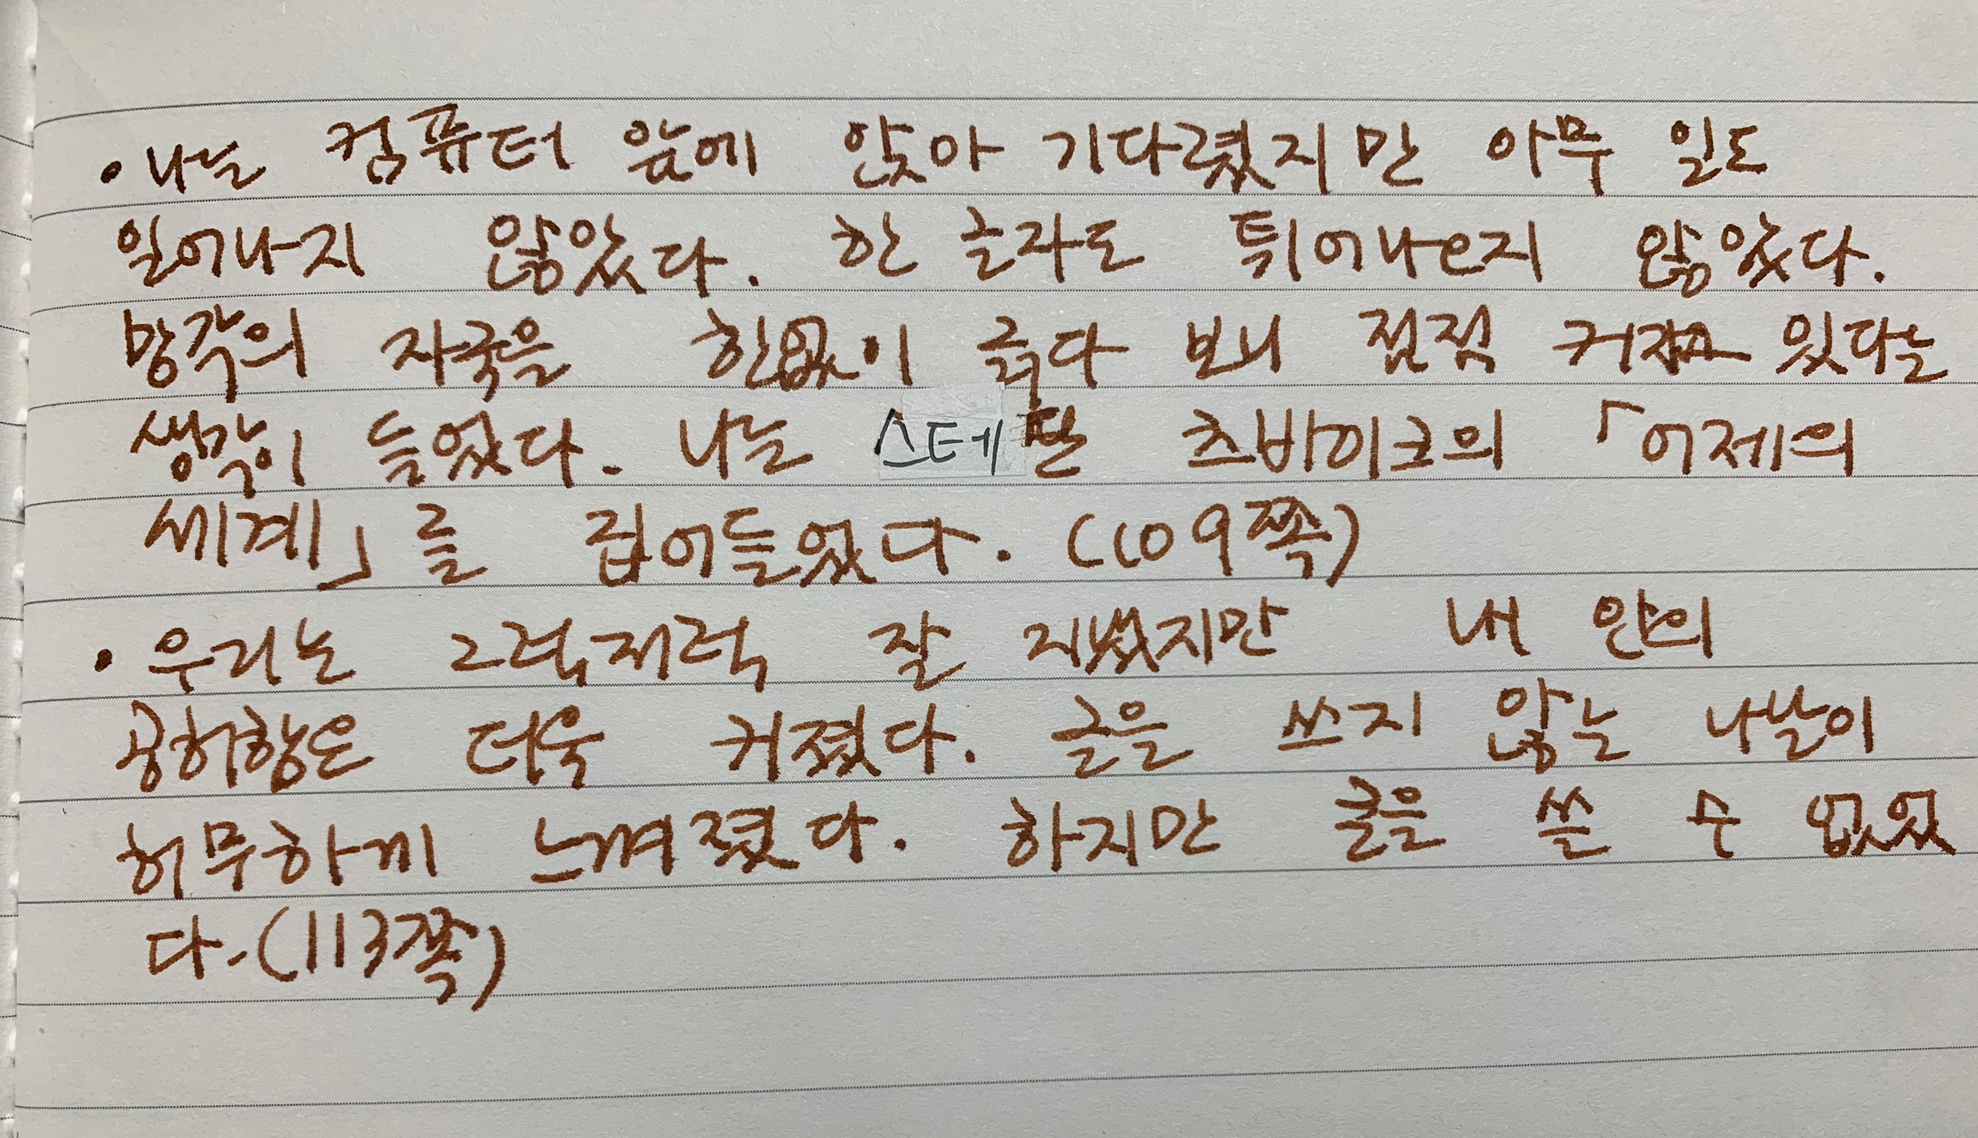 • 나는 컴퓨터 앞에 앉아 기다렸지만 아무 일도
일어나지 않았다. 한 글자도 튀어나오지 않았다.
망각의 자국을 한없이 긁다 보니 점점 커져가 있다는
생각이 들었다. 나는 스테판 츠바이크의 「어제의
세계」를 집어들었다. (109쪽)
• 우리는 그럭저럭 잘 지냈지만 내 안의
공허함은 더욱 커졌다. 글을 쓰지 않는 나날이
허무하게 느껴졌다. 하지만 글을 쓸 수 없었
다. (113쪽)